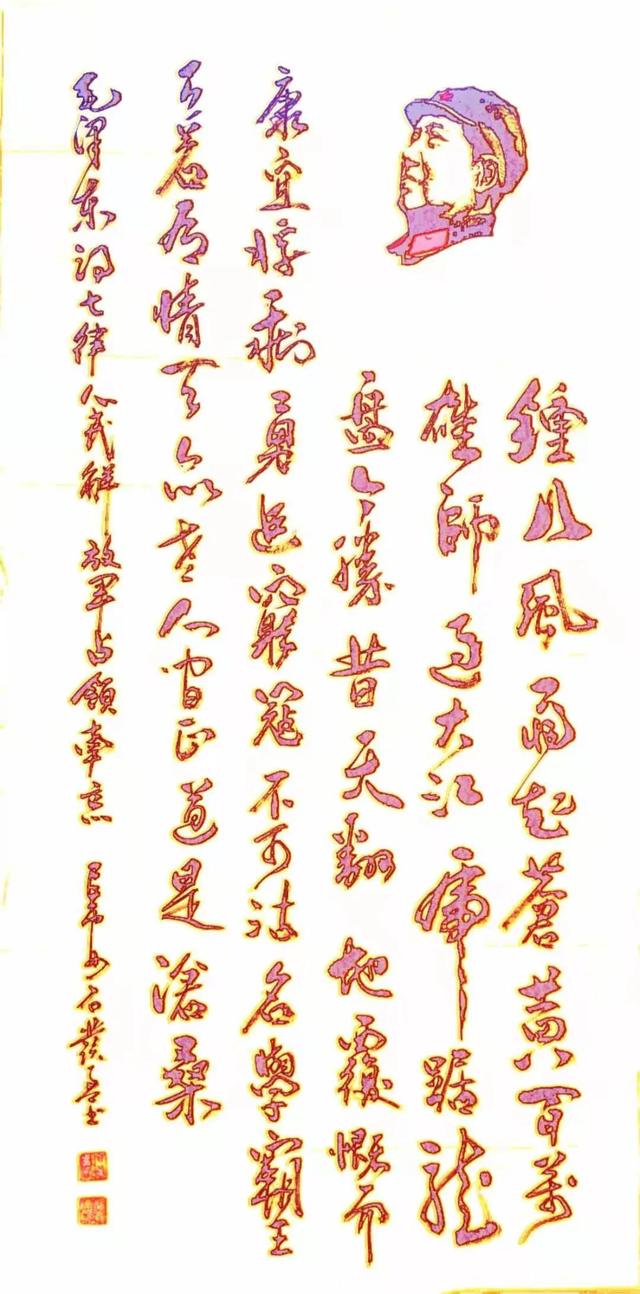 鍾山風雨起蒼黄百萬
雄師過大江虎踞龍
盤今勝昔天翻地覆慨而
康宜將剩勇追窮寇不可沽名學霸王
天若有情天亦老人間正道是滄桑
毛澤東詞七律人民解放軍占領南京